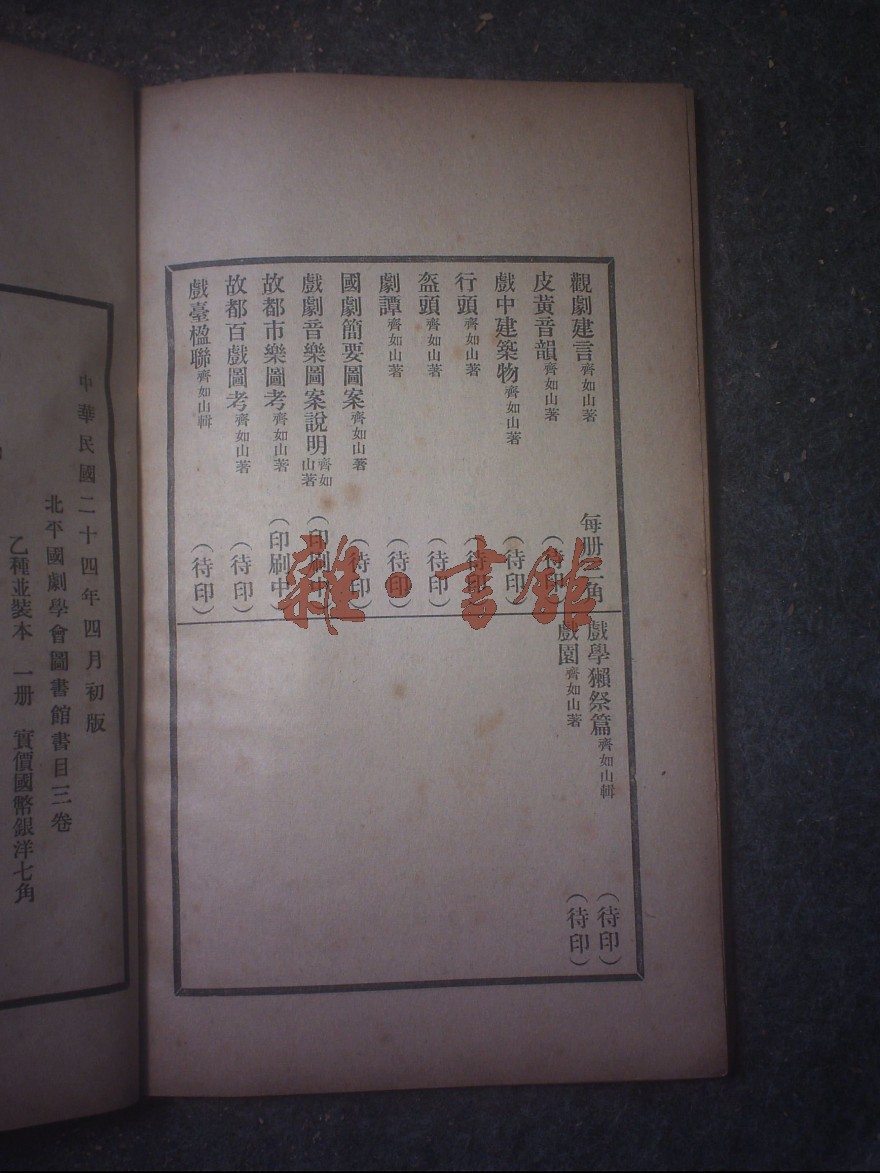 觀劇建言齊如山著 每册二角
皮黃音韻齊如山著 （待印）
戲中建築物齊如山著 （待印）
行頭齊如山著 （待印）
盔頭齊如山著 （待印）
劇譚齊如山著 （待印）
國劇簡要圖案齊如山著 （待印）
戲劇音樂圖案說明齊如山著 （印刷中）
故都市樂圖考齊如山著 （印刷中）
故都百戲圖考齊如山著 （待印）
戲臺楹聯齊如山輯 （待印）
戲學獺祭篇齊如山輯 （待印）
戲園齊如山著 （待印）
中華民國二十四年四月初版
北平國劇學會圖書館書目三卷
乙種並裝本 一册 實價國幣銀洋七角
雜·書館